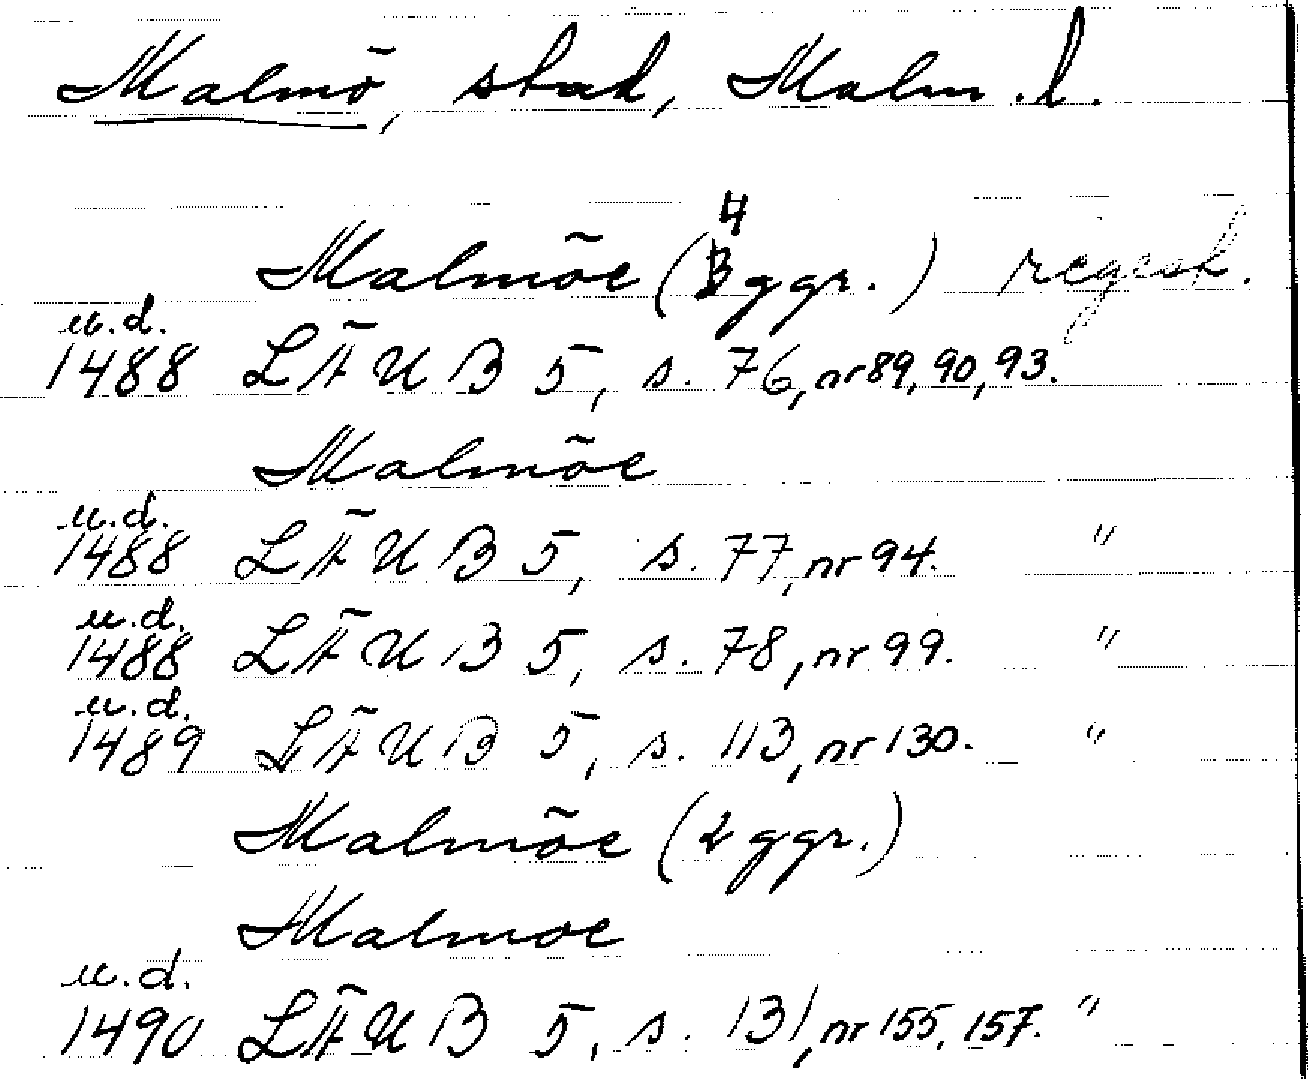 Malmö, stad, Malm.l.
Malmöe (4 ggr.) regest.
u.d.
1488 LÄUB 5, s. 76, nr 89, 90, 93.
Malmöe
u.d.
1488 LÄUB 5, s. 77, nr 94. "
u.d.
1488 LÄUB 5, s. 78, nr 99. "
u.d.
1489 LÄUB 5, s. 113, nr 130. "
Malmöe (2 ggr.)
Malmoe
u.d.
1490 LÄUB 5, s. 131, nr 155, 157. "